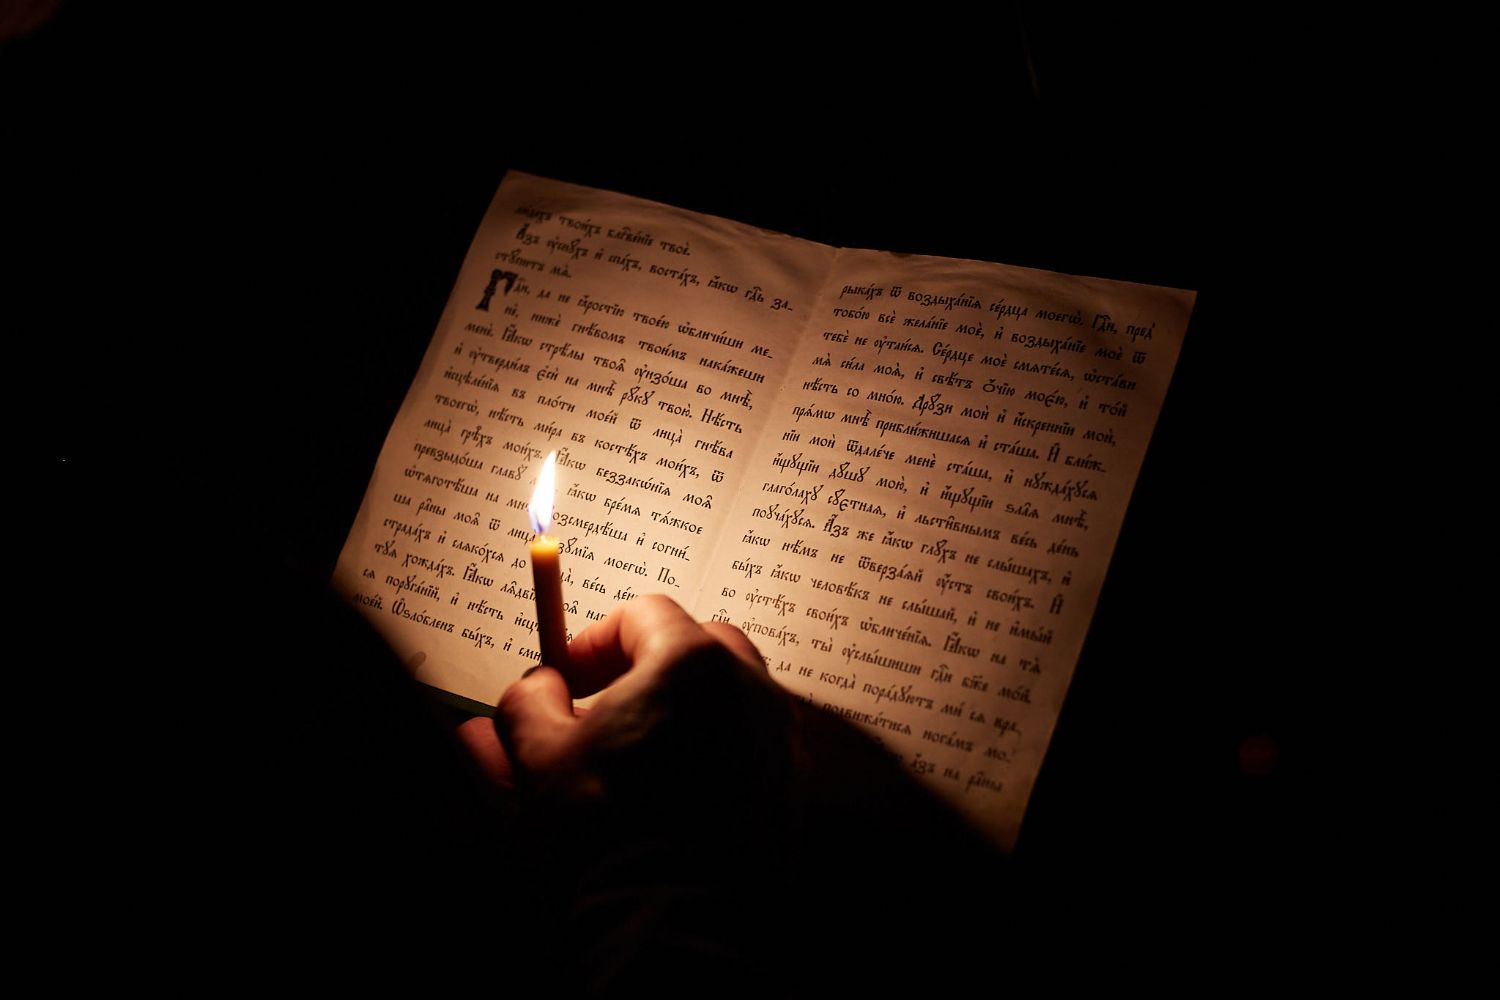 лю́дехъ твои́хъ блгве́нїе твоѐ.
А҆́зъ ᲂу҆снꙋ́хъ и҆ спа́хъ, воста́хъ, ꙗ҆́кѡ гдⷭ҇ь за-
стꙋ́питъ мѧ̀.
Гдⷭ҇и, да не ꙗ҆́ростїю твое́ю ѡ҆бличи́ши ме-
нѐ, нижѐ гнѣ́вомъ твои́мъ нака́жеши
менѐ. Ꙗ҆́кѡ стрѣ́лы твоѧ̑ ᲂу҆нзо́ша во мнѣ̀,
и҆ ᲂу҆тверди́лъ є҆сѝ на мнѣ̀ рꙋ́кꙋ твою̀. Нѣ́сть
и҆сцѣле́нїѧ въ пло́ти мое́й ѿ лица̀ гнѣ́ва
твоегѡ̀, нѣ́сть ми́ра въ косте́хъ мои́хъ, ѿ
лица̀ грѣ̑хъ мои́хъ. Ꙗ҆́кѡ беззакѡ́нїѧ моѧ̑
превзыдо́ша главꙋ̀ ꙗ҆́кѡ бре́мѧ тѧ́жкое
ѡ҆тѧготѣ́ша на мнѣ̀. возсмердѣ́ша и҆ согни́-
ша ра̑ны моѧ̑ ѿ лица̀ безꙋ́мїѧ моегѡ̀. По-
страда́хъ и҆ слѧко́хсѧ до весь де́нь
тꙋѧ хожда́хъ. Ꙗ҆́кѡ лѧ̑двїѧ моѧ̑
сѧ порꙋга́нїй, и҆ нѣ́сть
мое́й. Ѡ҆ѕло́бленъ бы́хъ, и҆
рыка́хъ ѿ воздыха́нїѧ се́рдца моегѡ̀. Гдⷭ҇и, пред̾
тобо́ю всѐ жела́нїе моѐ, и҆ воздыха́нїе моѐ ѿ
тебѐ не ᲂу҆таи́сѧ. Се́рдце моѐ смѧте́сѧ, ѡ҆ста́ви
мѧ̀ си́ла моѧ̀, и҆ свѣ́тъ ѻ҆́чїю моє́ю, и҆ то́й
нѣ́сть со мно́ю. Дрꙋ́зи моѝ и҆ и҆́скреннїи моѝ,
прѧ́мѡ мнѣ̀ прибли́жишасѧ и҆ ста́ша. И҆ бли́ж-
нїи моѝ ѿдале́че менѐ ста́ша, и҆ нꙋжда́хꙋсѧ
и҆́щꙋщїи дꙋ́шꙋ мою̀, и҆ и҆́щꙋщїи ѕла̑ѧ мнѣ̀,
глаго́лахꙋ сꙋ́єтнаѧ, и҆ льсти̑внымъ ве́сь де́нь
поꙋча́хꙋсѧ. А҆́зъ же ꙗ҆́кѡ глꙋ́хъ не слы́шахъ, и҆
ꙗ҆́кѡ нѣ́мъ не ѿверза́ѧй ᲂу҆́стъ свои́хъ. И҆
бы́хъ ꙗ҆́кѡ человѣ́къ не слы́шай, и҆ не и҆мы́й
во ᲂу҆стѣ́хъ свои́хъ ѡ҆бличе́нїѧ. Ꙗ҆́кѡ на тѧ̀
гдⷭ҇и ᲂу҆пова́хъ, ты̀ ᲂу҆слы́шиши гдⷭ҇и бж҃е мо́й.
да не когда̀ пора́дꙋютъ ми́ сѧ вра-
подвижа́тисѧ нога́мъ мо-
а҆́зъ на ра̑ны